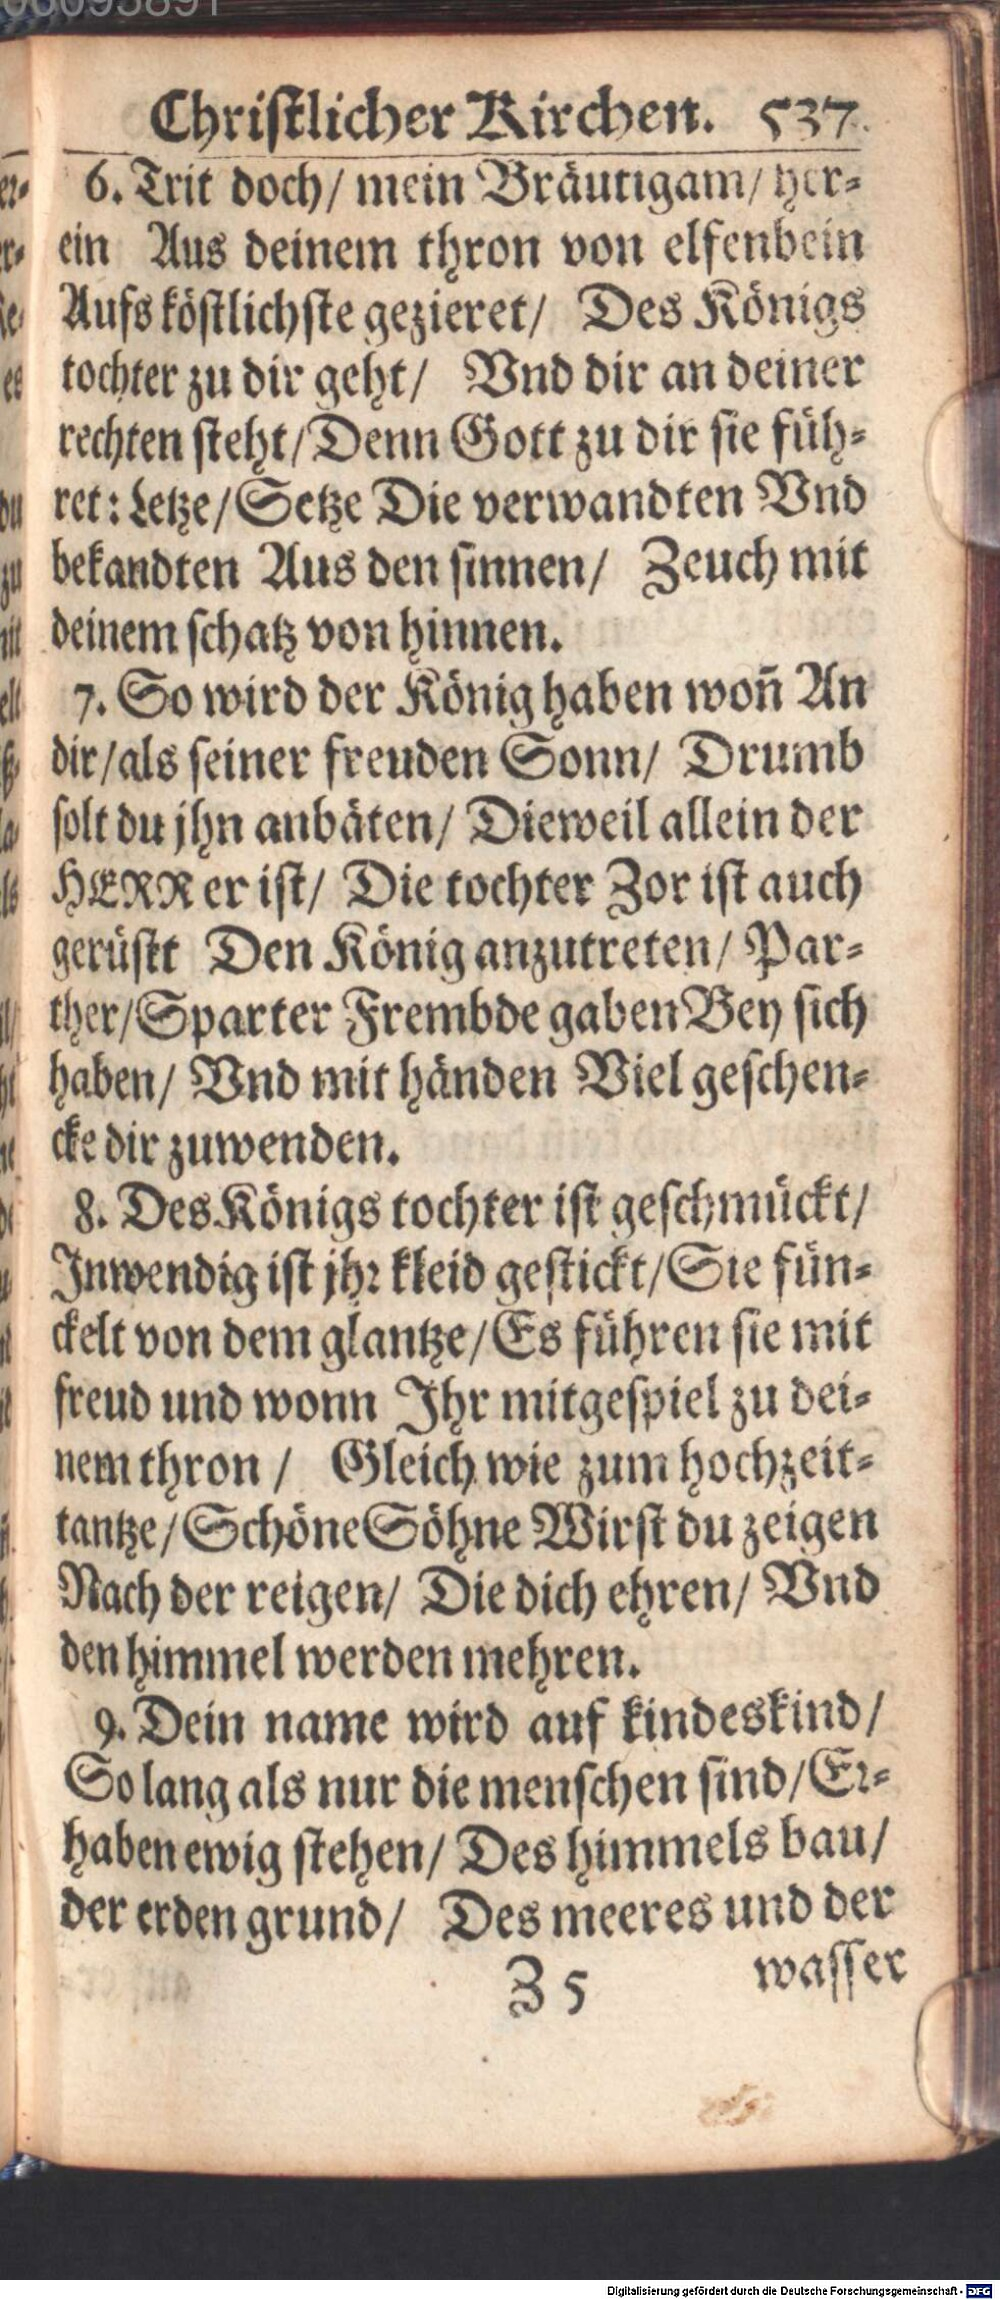 Christlicher Kirchen. 537.
6. Trit doch/ mein Bräutigam/ her-
ein Aus deinem thron von elfenbein
Aufs köstlichste gezieret/ Des Königs
tochter zu dir geht/ Vnd dir an deiner
rechten steht/ Denn Gott zu dir sie füh-
ret: Letze/ Setze Die verwandten Vnd
bekandten Aus den sinnen/ Zeuch mit
deinem schatz von hinnen.
7. So wird der König haben woñ An
dir/ als seiner freuden Sonn/ Drumb
solt du jhn anbäten/ Dieweil allein der
HERR er ist/ Die tochter Zor ist auch
gerüstt Den König anzutreten/ Par-
ther/ Sparter Frembde gaben Bey sich
haben/ Vnd mit händen Viel geschen-
cke dir zuwenden.
8. Des Königs tochter ist geschmückt/
Inwendig ist jhr kleid gestickt/ Sie fün-
ckelt von dem glantze/ Es führen sie mit
freud und wonn Ihr mitgespiel zu dei-
nem thron/ Gleich wie zum hochzeit-
tantze/ Schöne Söhne Wirst du zeigen
Nach der reigen/ Die dich ehren/ Vnd
den himmel werden mehren.
9. Dein name wird auf kindeskind/
So lang als nur die menschen sind/ Er-
haben ewig stehen/ Des himmels bau/
der erden grund/ Des meeres und der
Z 5 wasser
Digitalisierung gefördert durch die Deutsche Forschungsgemeinschaft - DFG